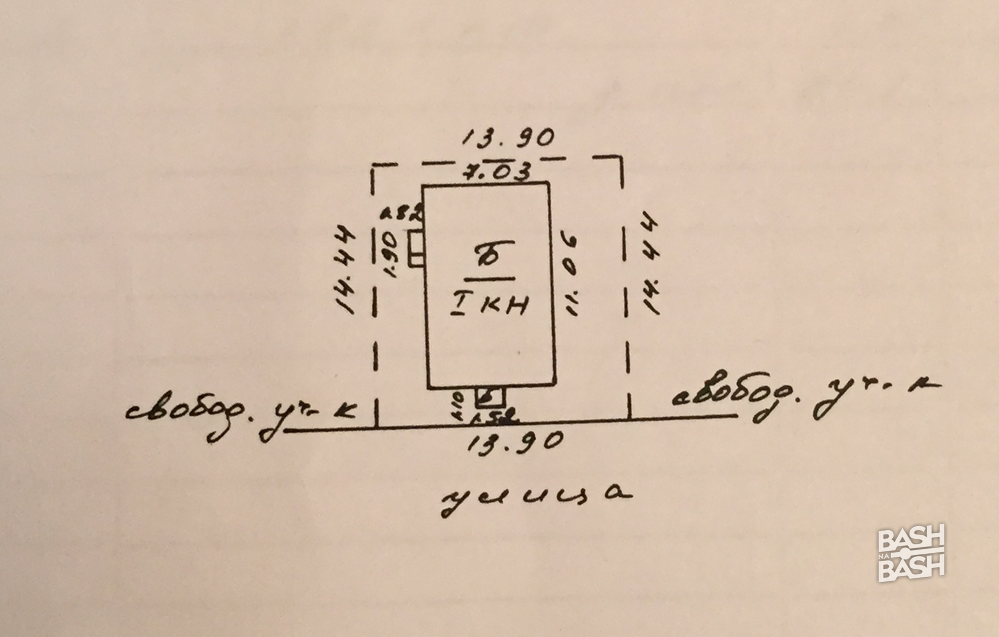 13.90
7.03
1.82
14.44
1.90
Б
I КН
11.06
14.44
1.10
1.52
свобод. уч-к
свобод. уч-к
13.90
улица
BASH
НА
BASH